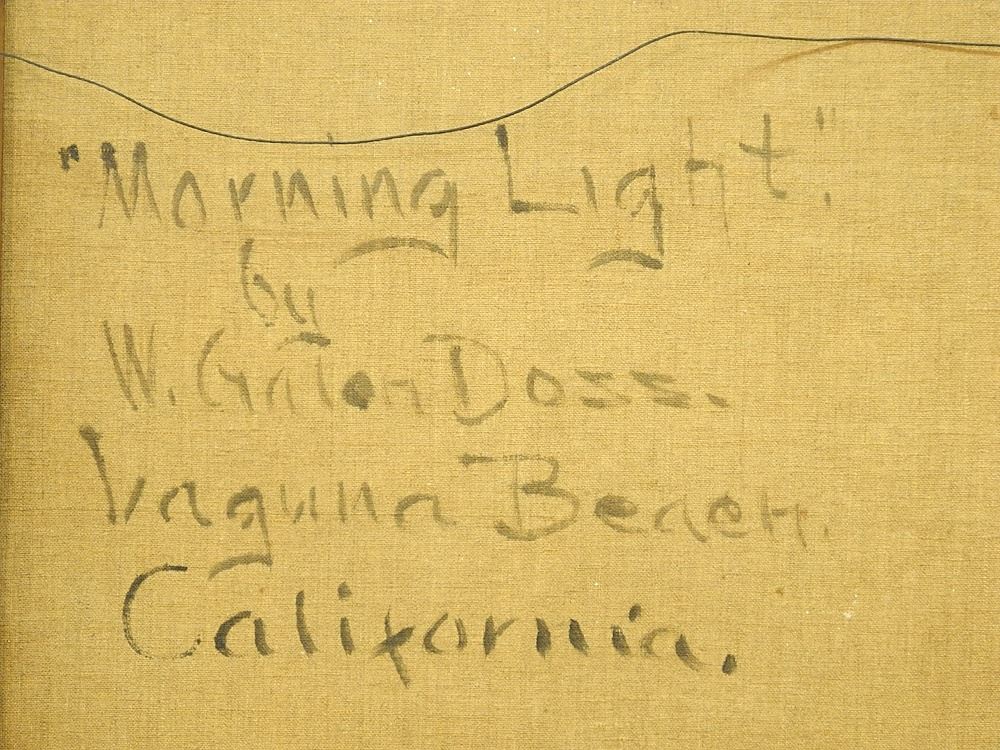 "Morning Light".
by
W. Galen Doss.
Laguna Beach.
California.